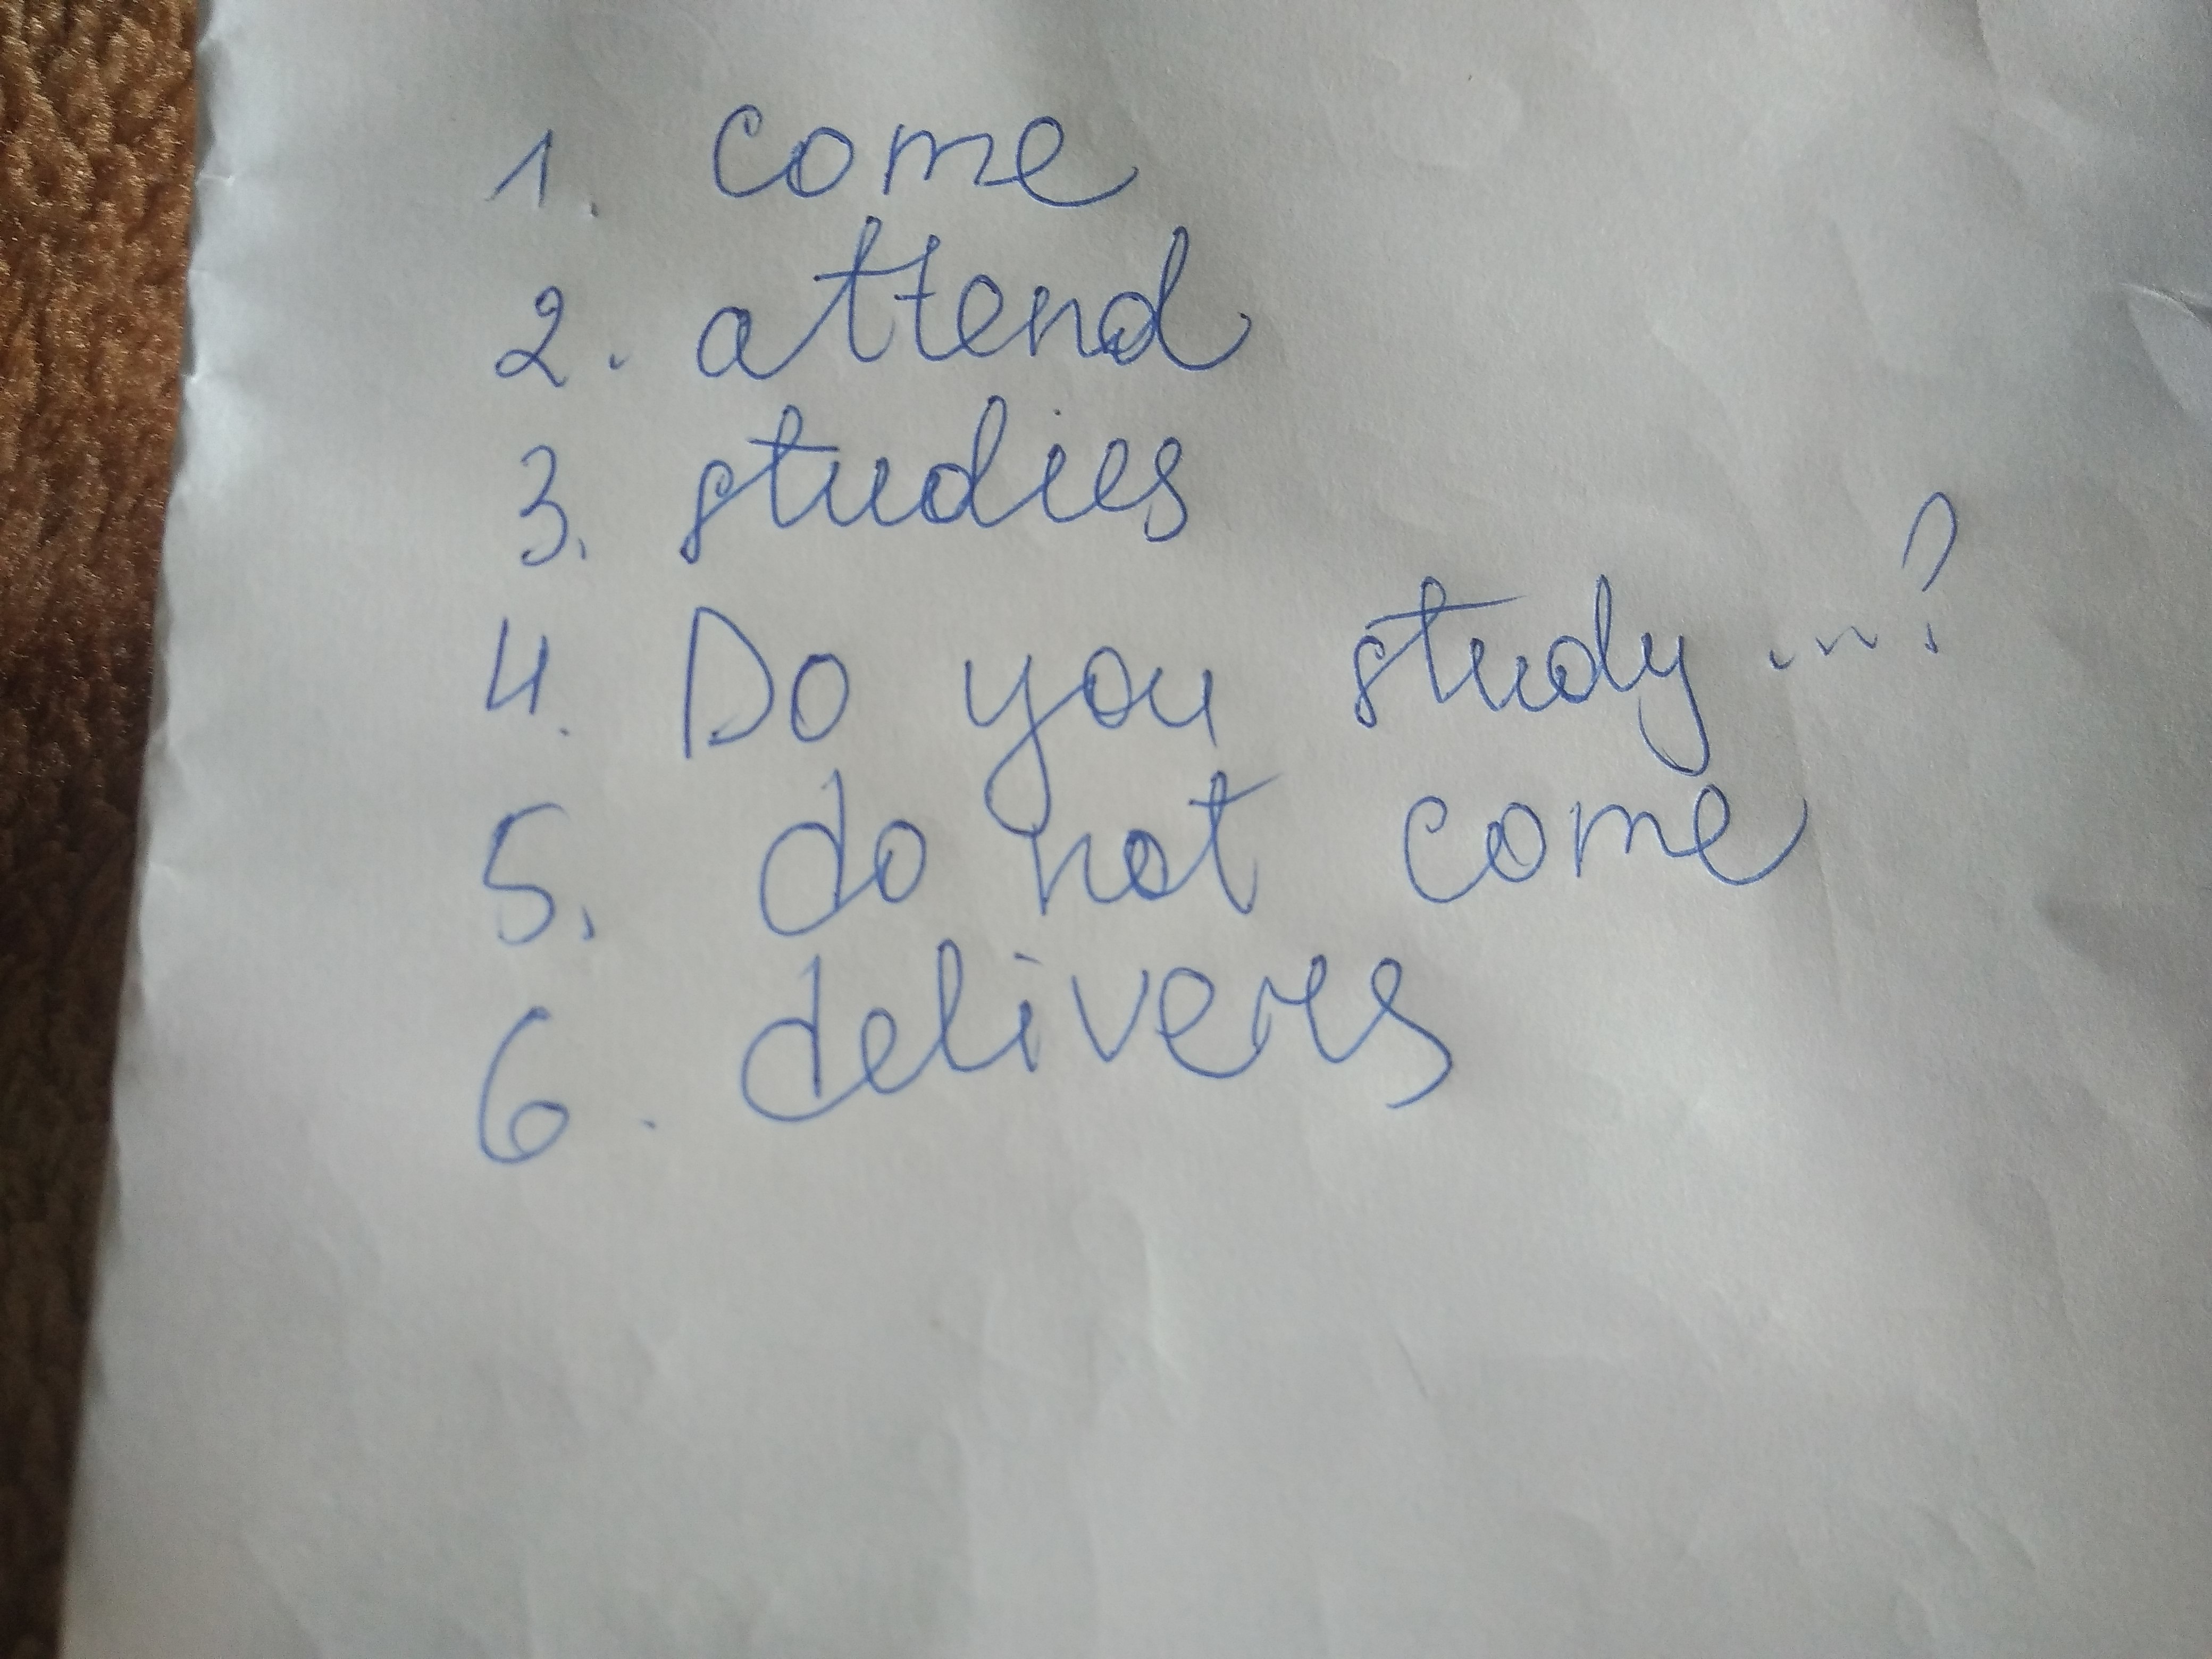 1. come
2. attend
3. studies
4. Do you study ...?
5. do not come
6. delivers